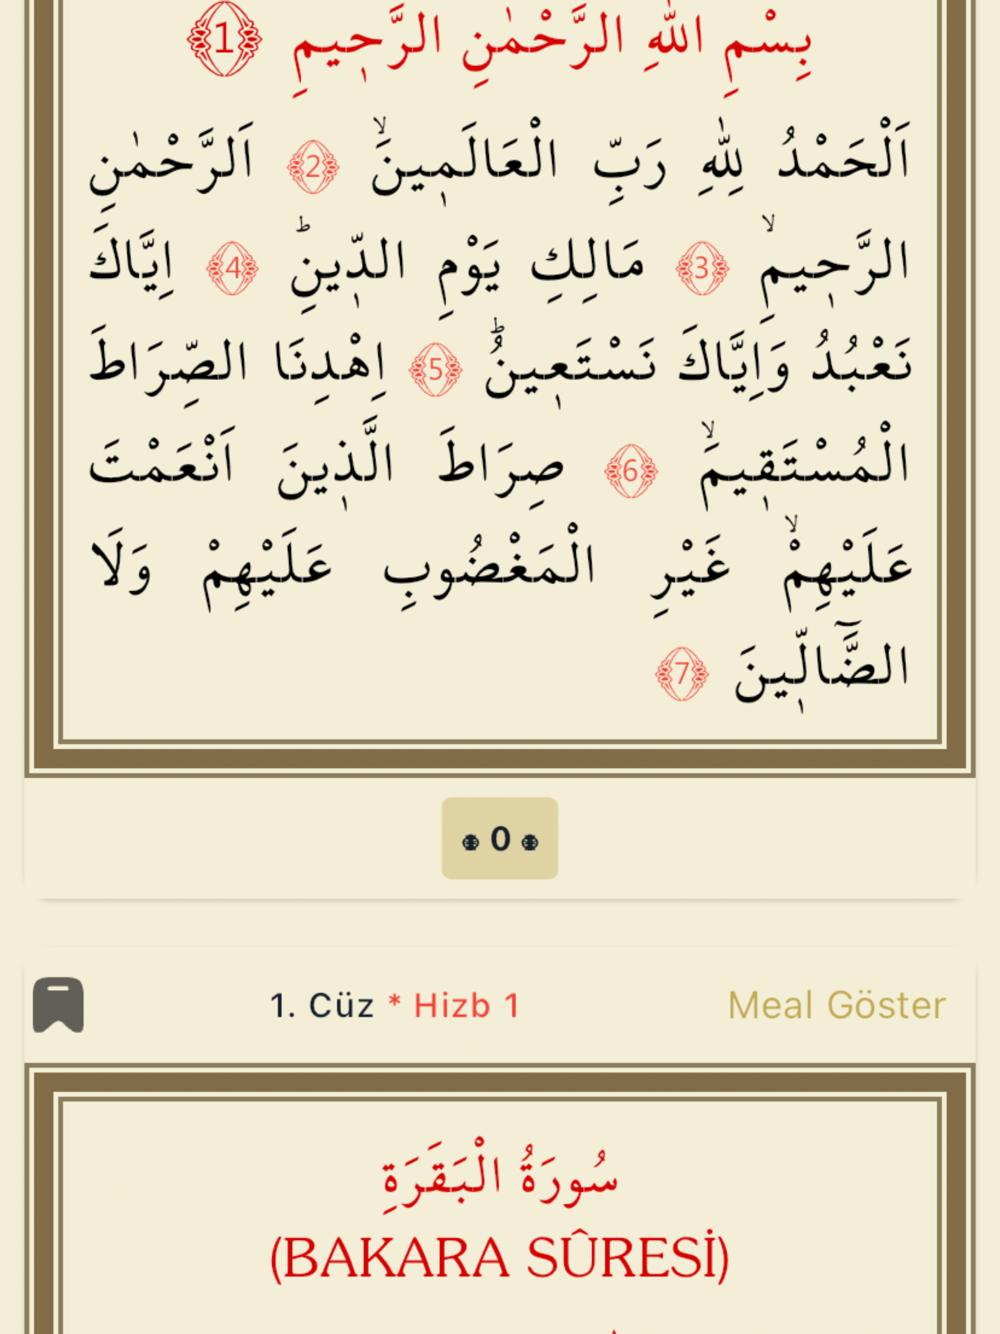 بِسْمِ اللّٰهِ الرَّحْمٰنِ الرَّح۪يمِ ﴿1﴾
اَلْحَمْدُ لِلّٰهِ رَبِّ الْعَالَم۪ينَۙ ﴿2﴾ اَلرَّحْمٰنِ
الرَّح۪يمِۙ ﴿3﴾ مَالِكِ يَوْمِ الدّ۪ينِۜ ﴿4﴾ اِيَّاكَ
نَعْبُدُ وَاِيَّاكَ نَسْتَع۪ينُۜ ﴿5﴾ اِهْدِنَا الصِّرَاطَ
الْمُسْتَق۪يمَۙ ﴿6﴾ صِرَاطَ الَّذ۪ينَ اَنْعَمْتَ
عَلَيْهِمْۙ غَيْرِ الْمَغْضُوبِ عَلَيْهِمْ وَلَا
الضَّٓالّ۪ينَ ﴿7﴾
0
1. Cüz * Hizb 1 Meal Göster
سُورَةُ الْبَقَرَةِ
(BAKARA SÛRESİ)